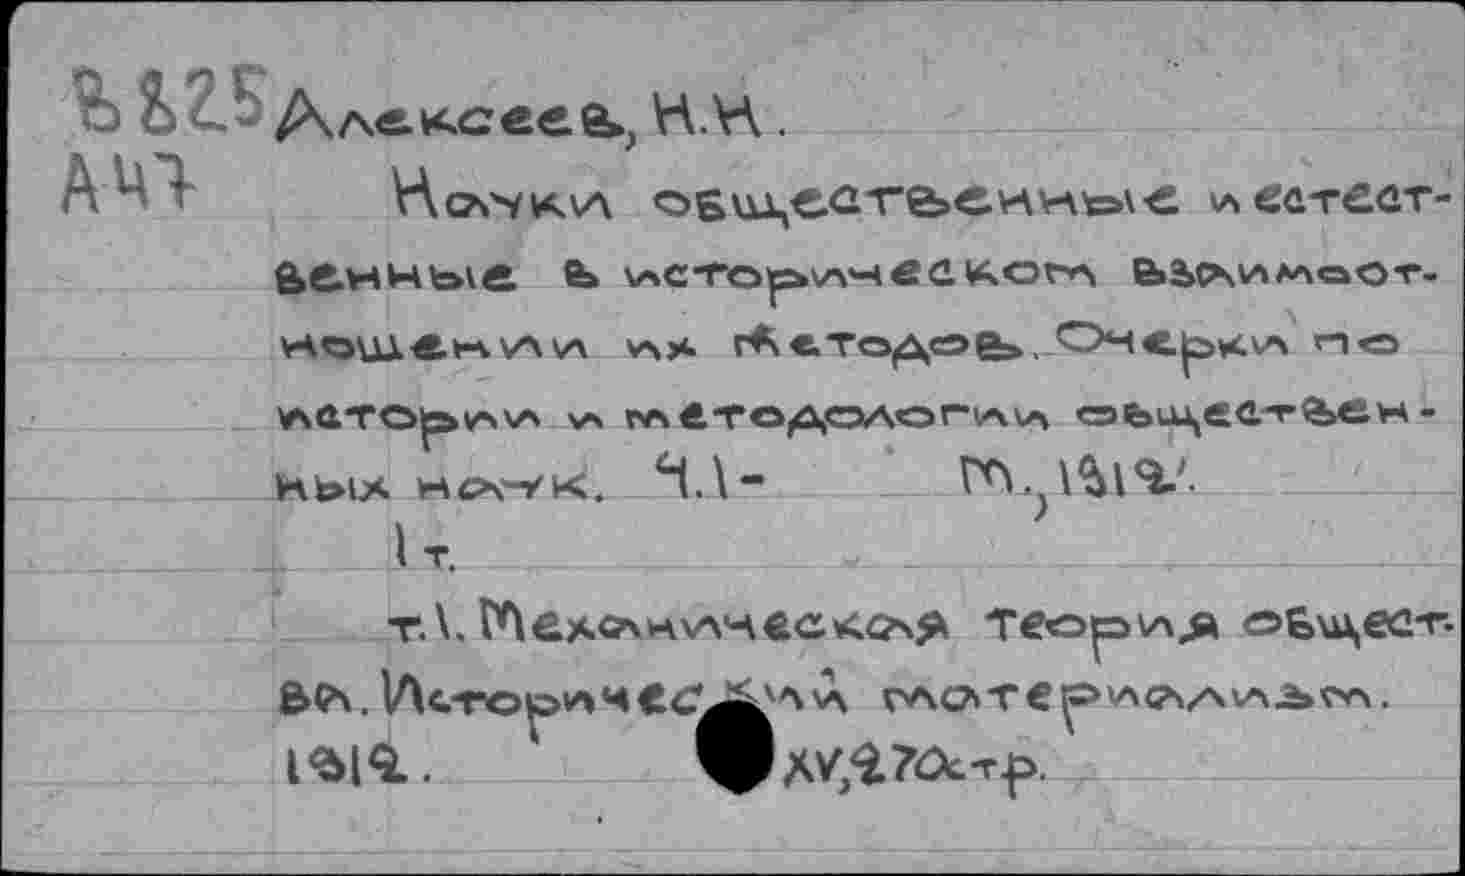 B825 Алексеев, Н.Н.
A47 Науки общественные и естест-
венные в историческом взаимоот-
ношении их методов. Очерки по
истории и методологии обществен-
ных наук. Ч.1- М., 1912.
1 т.
т.1. Механическая теория общест-
ва. Исторический материализм.
1912. XV,270стр.